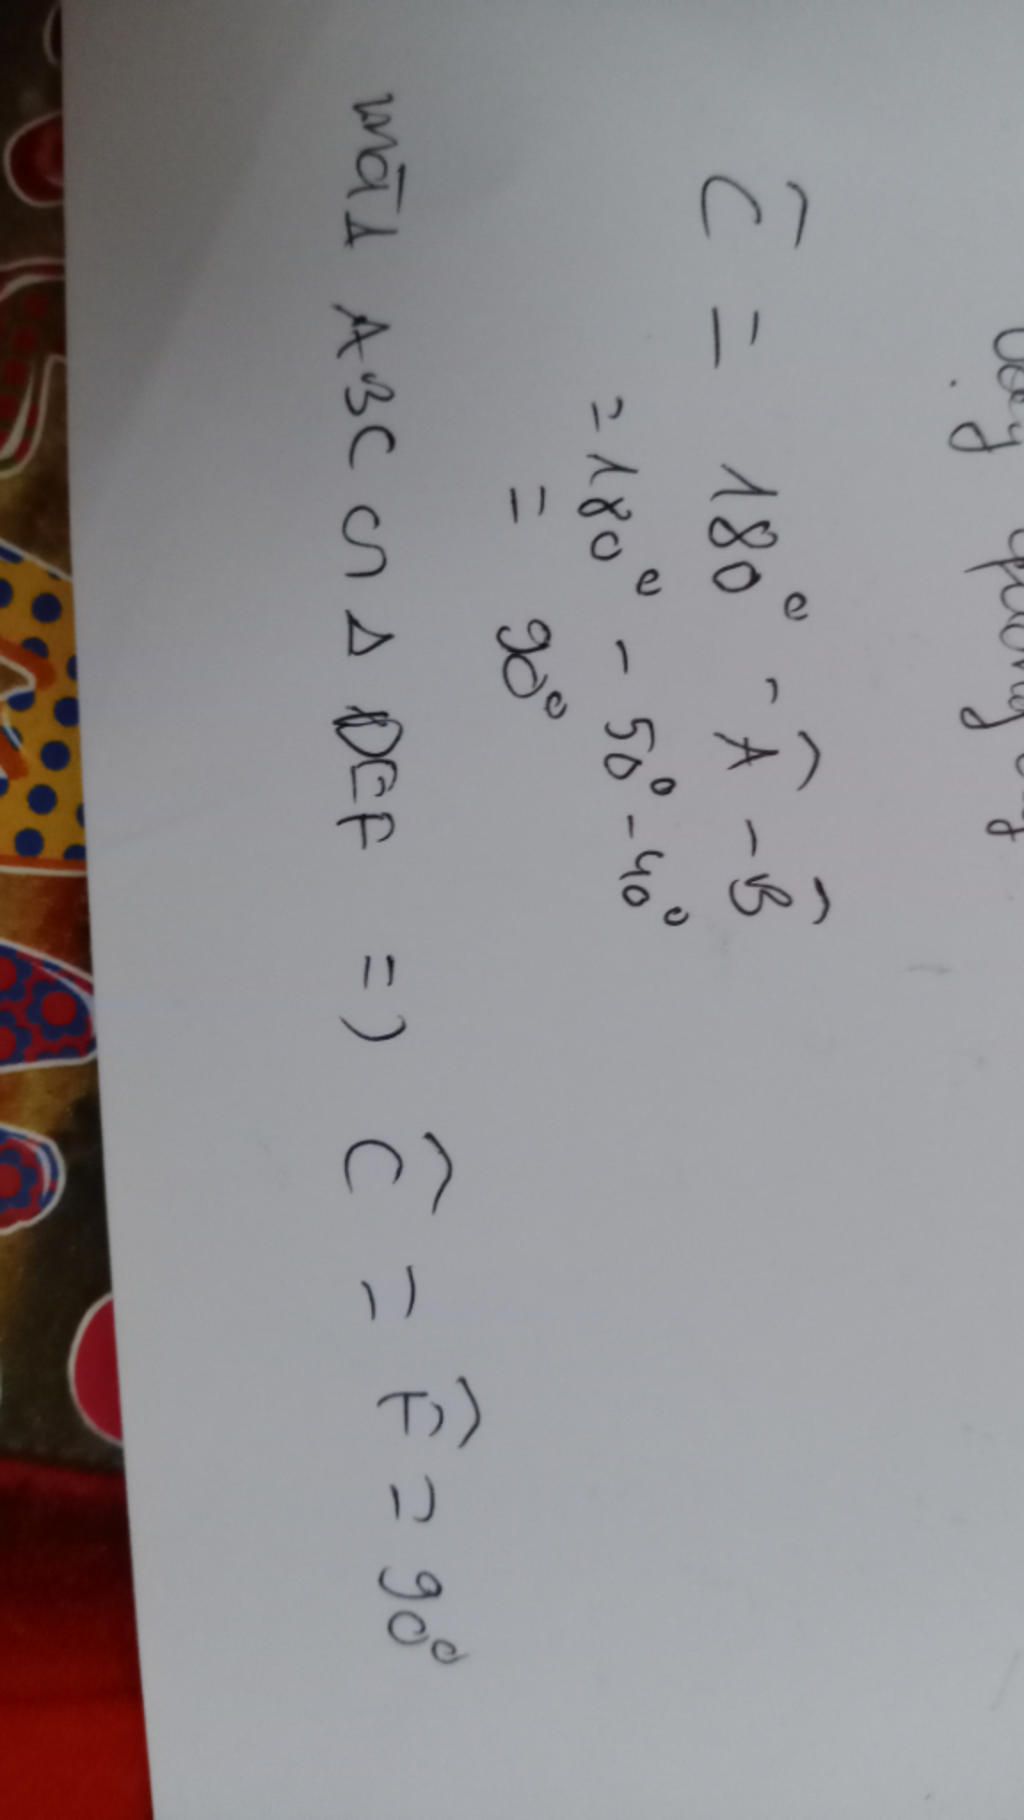 Ĉ = 180° - Â - B̂
= 180° - 50° - 40°
= 90°
mà Δ ABC ∽ Δ DEF => Ĉ = F̂ = 90°